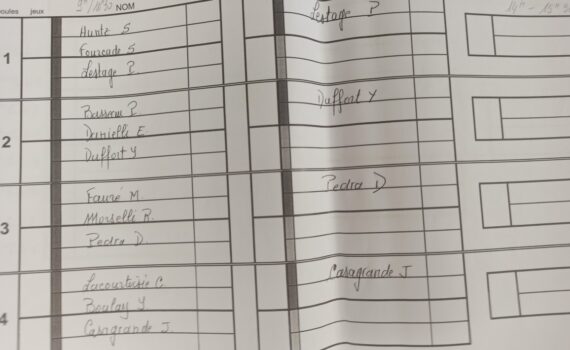 poules jeux 9h/10h30 NOM
1
Huntz S
Fourcade S
Lestage P.
2
Bassem P.
Danielli E.
Duffort Y
3
Fauré M.
Morselli R.
Pedra D.
4
Lacourtisie C
Boulay Y
Casagrande J.
Lestage P
Duffort Y
Pedra D
Casagrande J
14h - 15h30